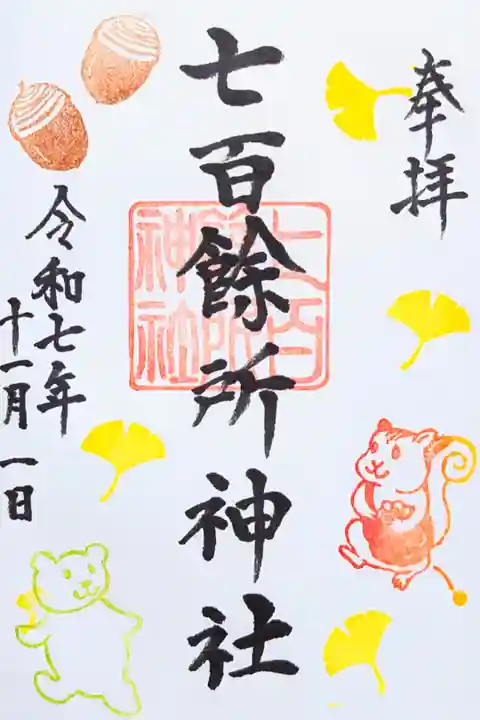 奉拝
七百餘所神社
七百
神社
令和七年
十一月一日